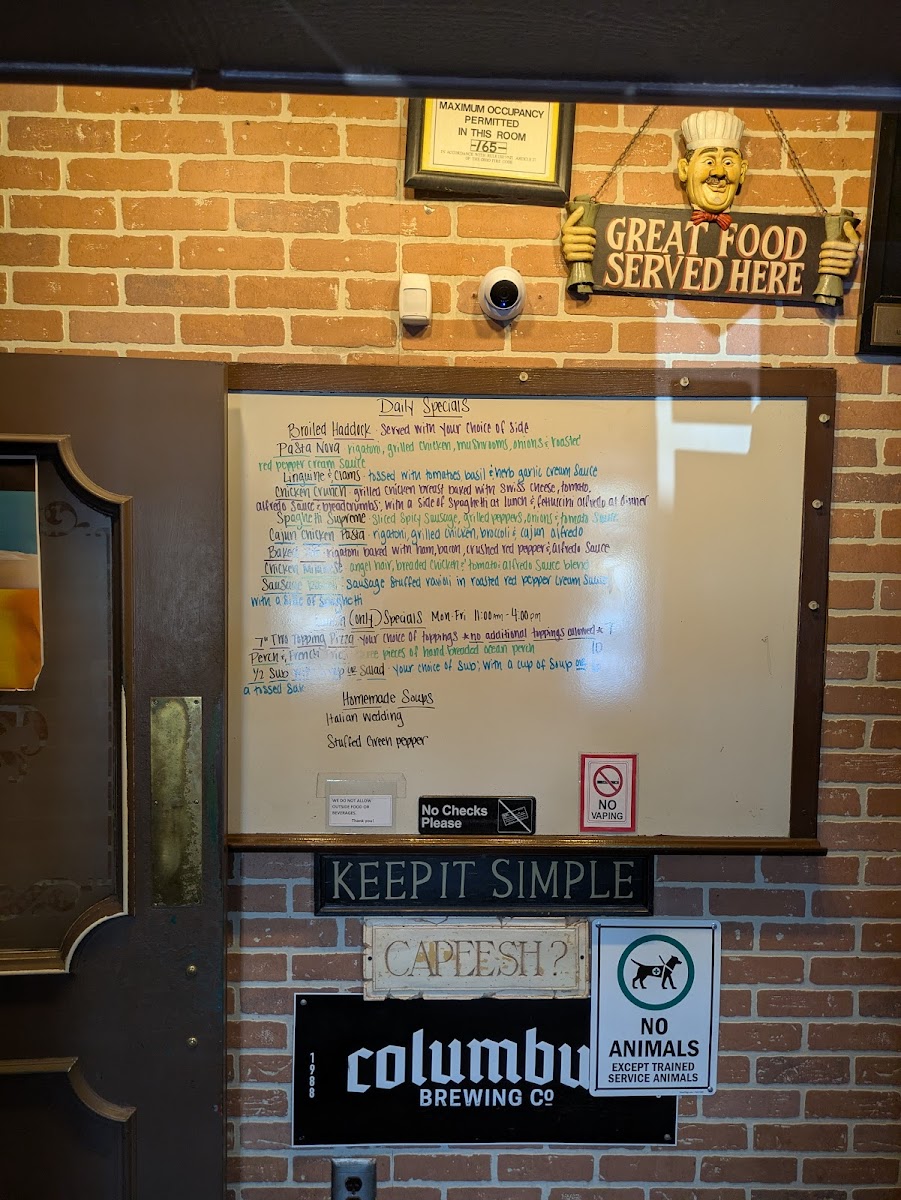 MAXIMUM OCCUPANCY
PERMITTED
IN THIS ROOM
765
GREAT FOOD
SERVED HERE
Daily Specials
Broiled Haddock - Served with your choice of side
Pasta Nova rigatoni, grilled chicken, mushrooms, onions & roasted
red pepper cream sauce
Linguine & Clams - tossed with tomatoes basil & herb garlic cream sauce
Chicken Crunch grilled chicken breast baked with swiss cheese, tomato,
alfredo sauce & breadcrumbs; with a side of spaghetti at lunch & fettuccini alfredo at dinner
Spaghetti Supreme sliced spicy sausage, grilled peppers, onions & tomato sauce
Cajun Chicken Pasta - rigatoni, grilled chicken, broccoli & cajun alfredo
Baked rigatoni baked with ham, bacon, crushed red pepper & alfredo sauce
Chicken angel hair, breaded chicken & tomato alfredo sauce blend
Sausage sausage stuffed ravioli in roasted red pepper cream sauce
with a side of spaghetti
(only) Specials Mon-Fri 11:00am-4:00pm
7" Two Topping Pizza your choice of toppings *no additional toppings allowed* 7
Perch & French pieces of hand breaded ocean perch 10
1/2 Sub or Salad your choice of sub; with a cup of soup or
a tossed
Homemade Soups
Italian Wedding
Stuffed Green pepper
WE DO NOT ALLOW
OUTSIDE FOOD OR
BEVERAGES.
Thank you!
No Checks
Please
NO
VAPING
KEEP IT SIMPLE
CAPEESH?
1988
columbu
BREWING CO
NO
ANIMALS
EXCEPT TRAINED
SERVICE ANIMALS